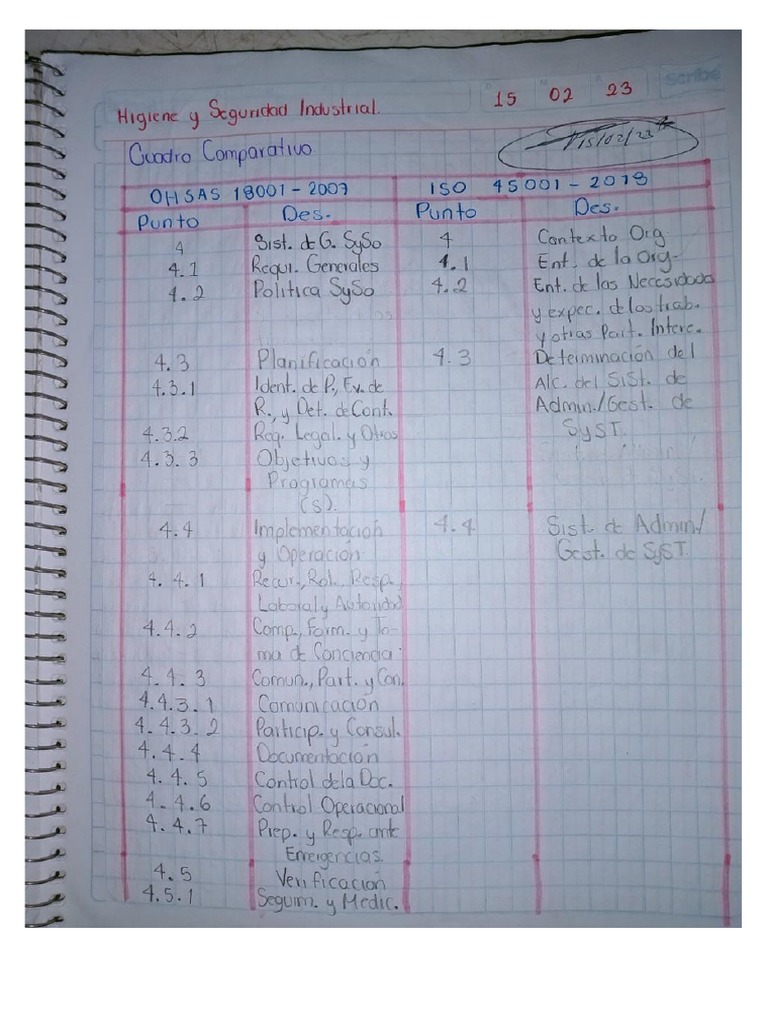 Scribe
15 02 23
Higiene y Seguridad Industrial.
15/02/23
Cuadro Comparativo
OHSAS 18001-2007 ISO 45001-2018
Punto Des. Punto Des.
4 Sist. de G. SySo 4 Contexto Org
4.1 Requi. Generales 4.1 Ent. de la Org-
4.2 Politica SySo 4.2 Ent. de las Necesidades
y expec. de los trab.
y otras Part. Intere.
4.3 Planificación 4.3 Determinación del
4.3.1 Ident. de P., Ev. de Alc. del Sist. de
R., y Det. de Cont. Admin./Gest. de
4.3.2 Req. Legal. y Otros SyST.
4.3.3 Objetivos y
Programas
(s).
4.4 Implementación 4.4 Sist. de Admin/
y Operación Gest. de SyST.
4.4.1 Recur., Rol., Resp.,
Laboral y Autoridad
4.4.2 Comp., Form. y To-
ma de Conciencia.
4.4.3 Comun., Part. y Con.
4.4.3.1 Comunicación
4.4.3.2 Particip. y Consul.
4.4.4 Documentación
4.4.5 Control de la Doc.
4.4.6 Control Operacional
4.4.7 Prep. y Resp. ante
Emergencias.
4.5 Verificación
4.5.1 Seguim. y Medic.